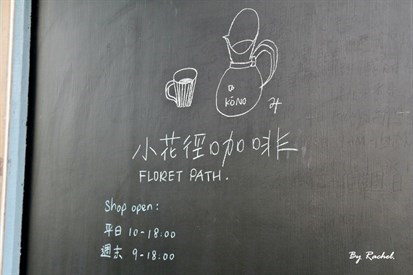 KōNO
小花徑咖啡
FLORET PATH.
Shop open:
平日 10-18:00
週末 9-18:00
By Rachel.